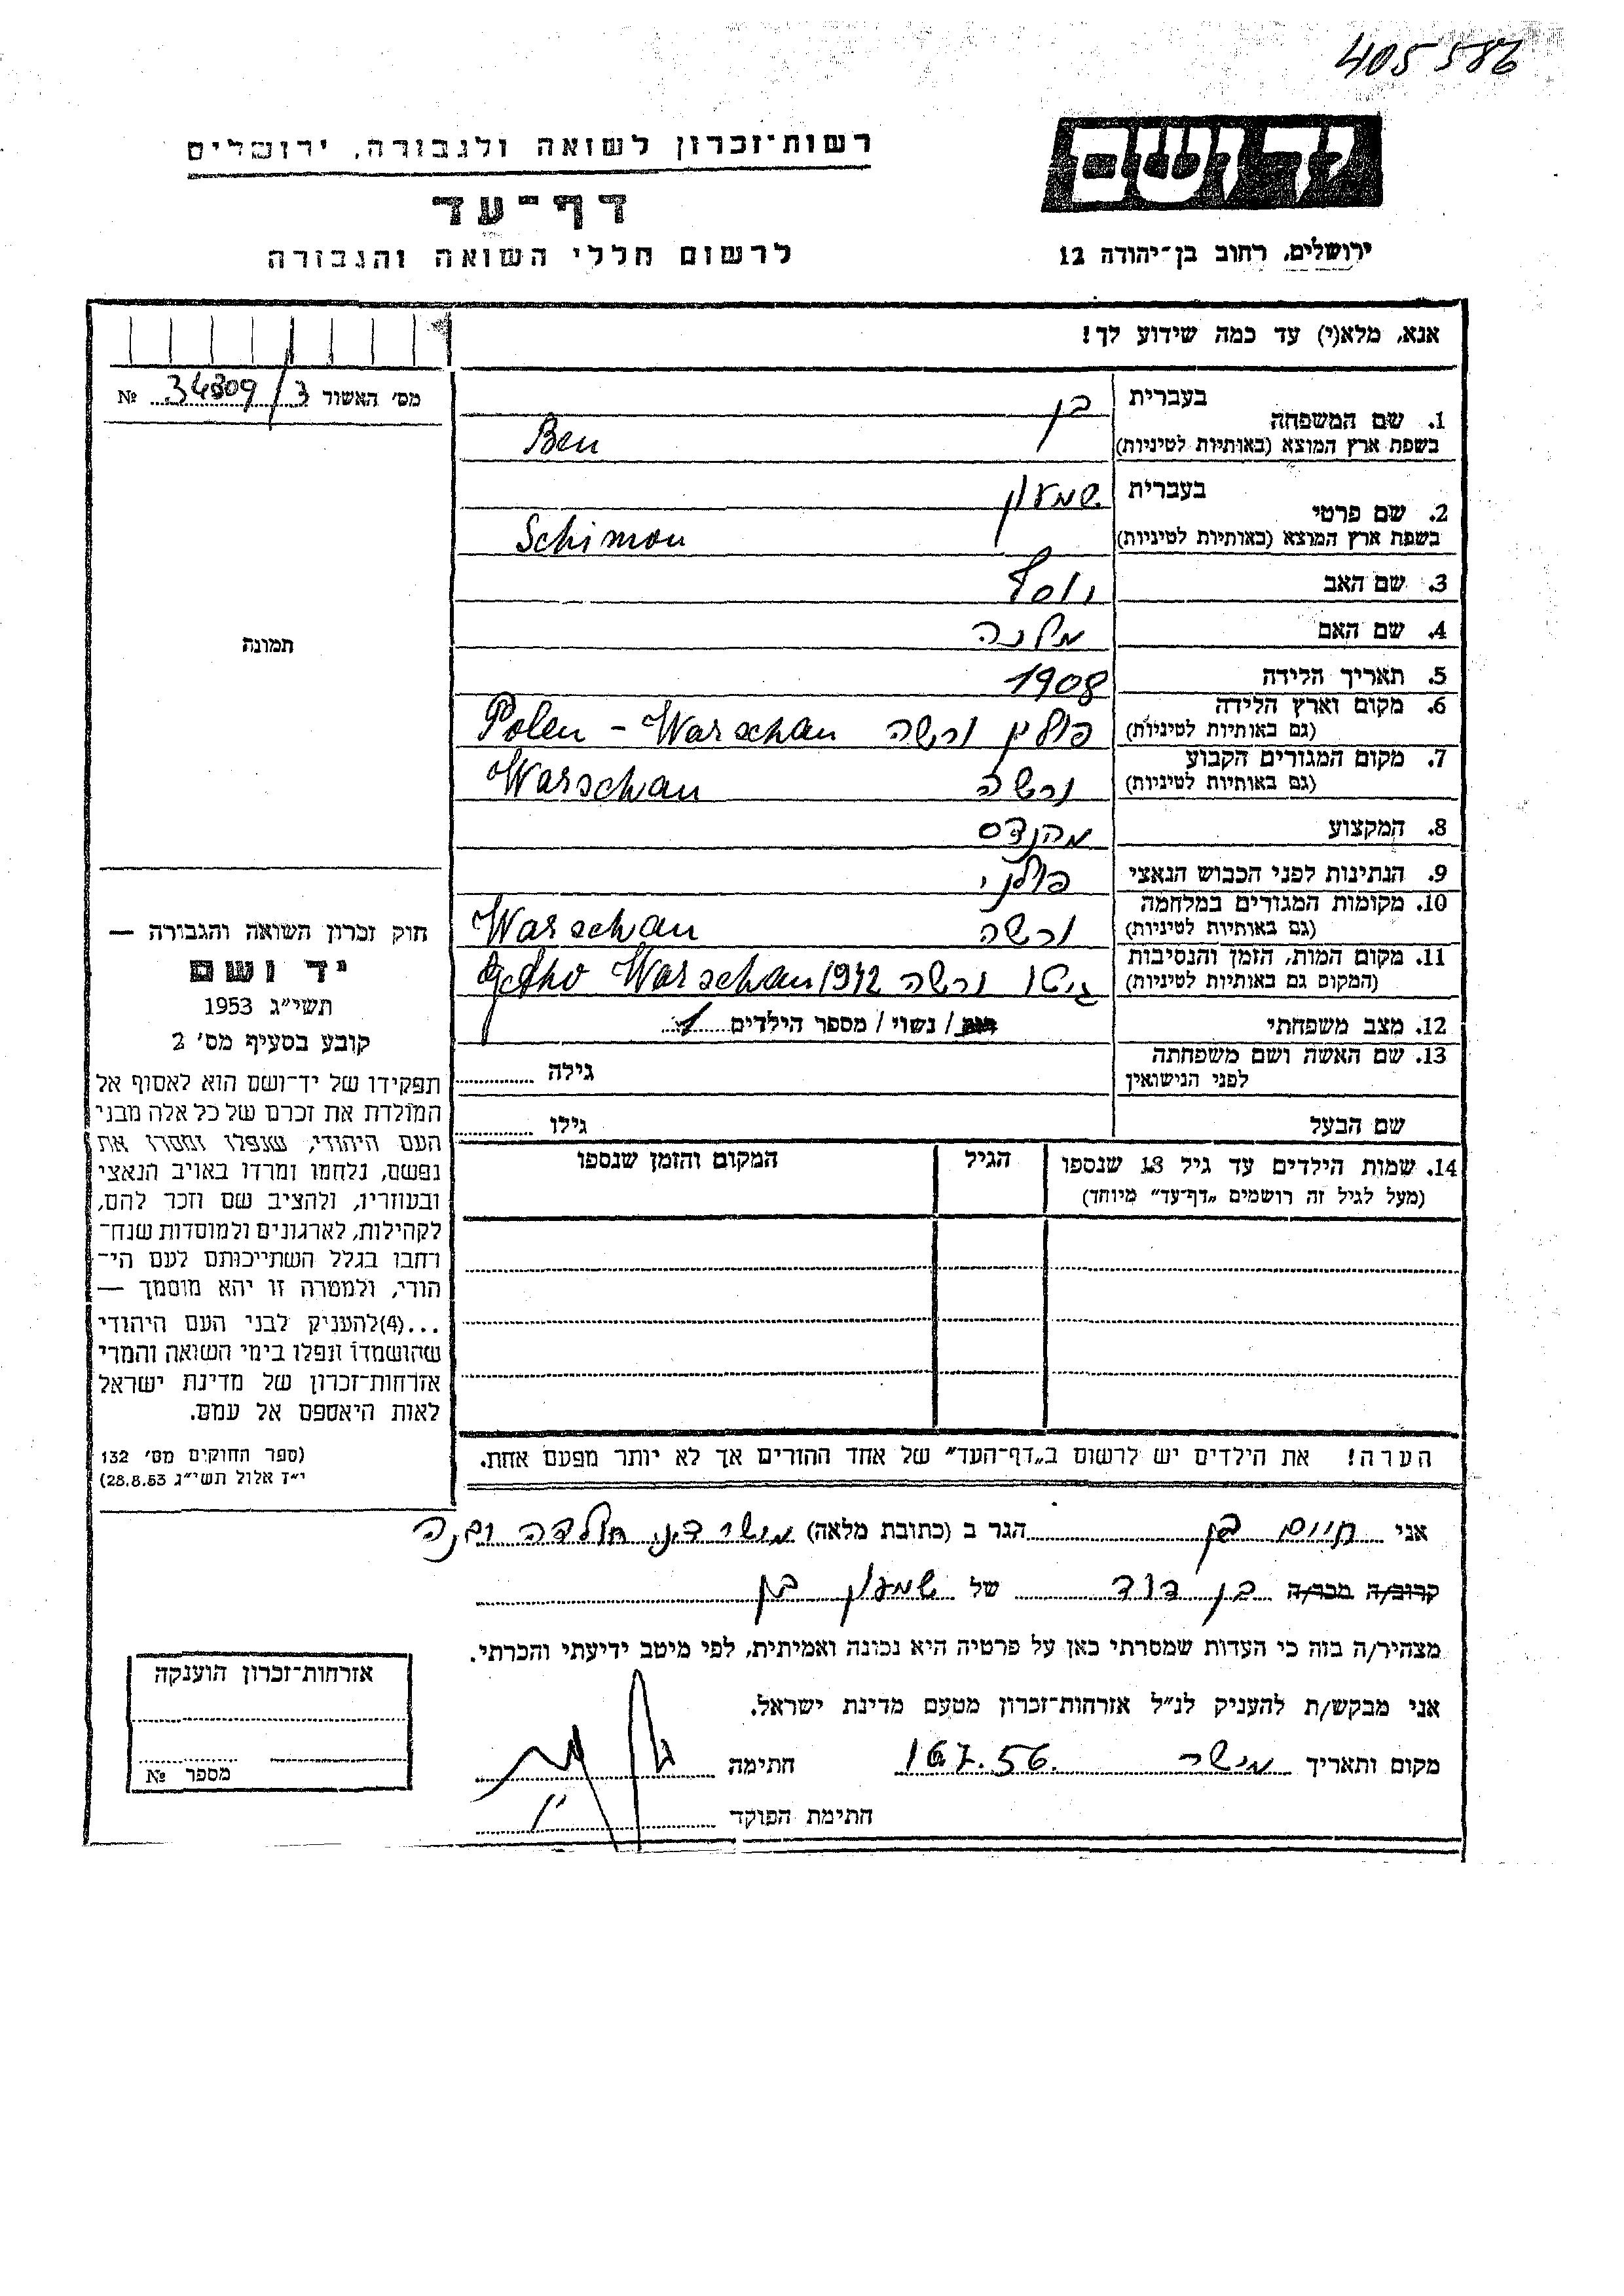 405586
רשות־זכרון לשואה ולגבורה, ירושלים
יד ושם
דף־עד
לרשום חללי השואה והגבורה
ירושלים, רחוב בן־יהודה 12
אנא, מלא(י) עד כמה שידוע לך!
מס׳ האשור 34809/3 №
1. שם המשפחה בעברית בן
בשפת ארץ המוצא (באותיות לטיניות) Ben
2. שם פרטי בעברית שמעון
בשפת ארץ המוצא (באותיות לטיניות) Schimon
3. שם האב יוסף
4. שם האם מלכה
5. תאריך הלידה 1908
6. מקום וארץ הלידה (גם באותיות לטיניות) פולין ורשה Polen - Warschau
7. מקום המגורים הקבוע (גם באותיות לטיניות) ורשה Warschau
8. המקצוע מהנדס
9. הנתינות לפני הכבוש הנאצי פולני
10. מקומות המגורים במלחמה (גם באותיות לטיניות) ורשה Warschau
11. מקום המות, הזמן והנסיבות (המקום גם באותיות לטיניות) גיטו ורשה 1942 Warschau
12. מצב משפחתי רווק / נשוי / מספר הילדים 1
13. שם האשה ושם משפחתה לפני הנישואין גילה
שם הבעל גילו
14. שמות הילדים עד גיל 13 שנספו הגיל המקום והזמן שנספו
(מעל לגיל זה רושמים „דף־עד״ מיוחד)
הערה! את הילדים יש לרשום ב„דף־העד״ של אחד ההורים אך לא יותר מפעם אחת.
תמונה
חוק זכרון השואה והגבורה —
יד ושם
תשי״ג 1953
קובע בסעיף מס׳ 2
תפקידו של יד־ושם הוא לאסוף אל
המולדת את זכרם של כל אלה מבני
העם היהודי, שנפלו ומסרו את
נפשם, נלחמו ומרדו באויב הנאצי
ובעוזריו, ולהציב שם וזכר להם,
לקהילות, לארגונים ולמוסדות שנח־
רבו בגלל השתייכותם לעם הי־
הודי, ולמטרה זו יהא מוסמך —
...(4)להעניק לבני העם היהודי
שהושמדו ונפלו בימי השואה והמרי
אזרחות־זכרון של מדינת ישראל
לאות היאספם אל עמם.
(ספר החוקים מס׳ 132
י״ז אלול תשי״ג 28.8.53)
אני חיים בן הגר ב (כתובת מלאה)
קרוב/ה מכר/ה בן דוד של שמעון בן
מצהיר/ה בזה כי העדות שמסרתי כאן על פרטיה היא נכונה ואמיתית, לפי מיטב ידיעתי והכרתי.
אני מבקש/ת להעניק לנ״ל אזרחות־זכרון מטעם מדינת ישראל.
מקום ותאריך 16.7.56. חתימה
חתימת הפוקד
אזרחות־זכרון הוענקה
מספר №